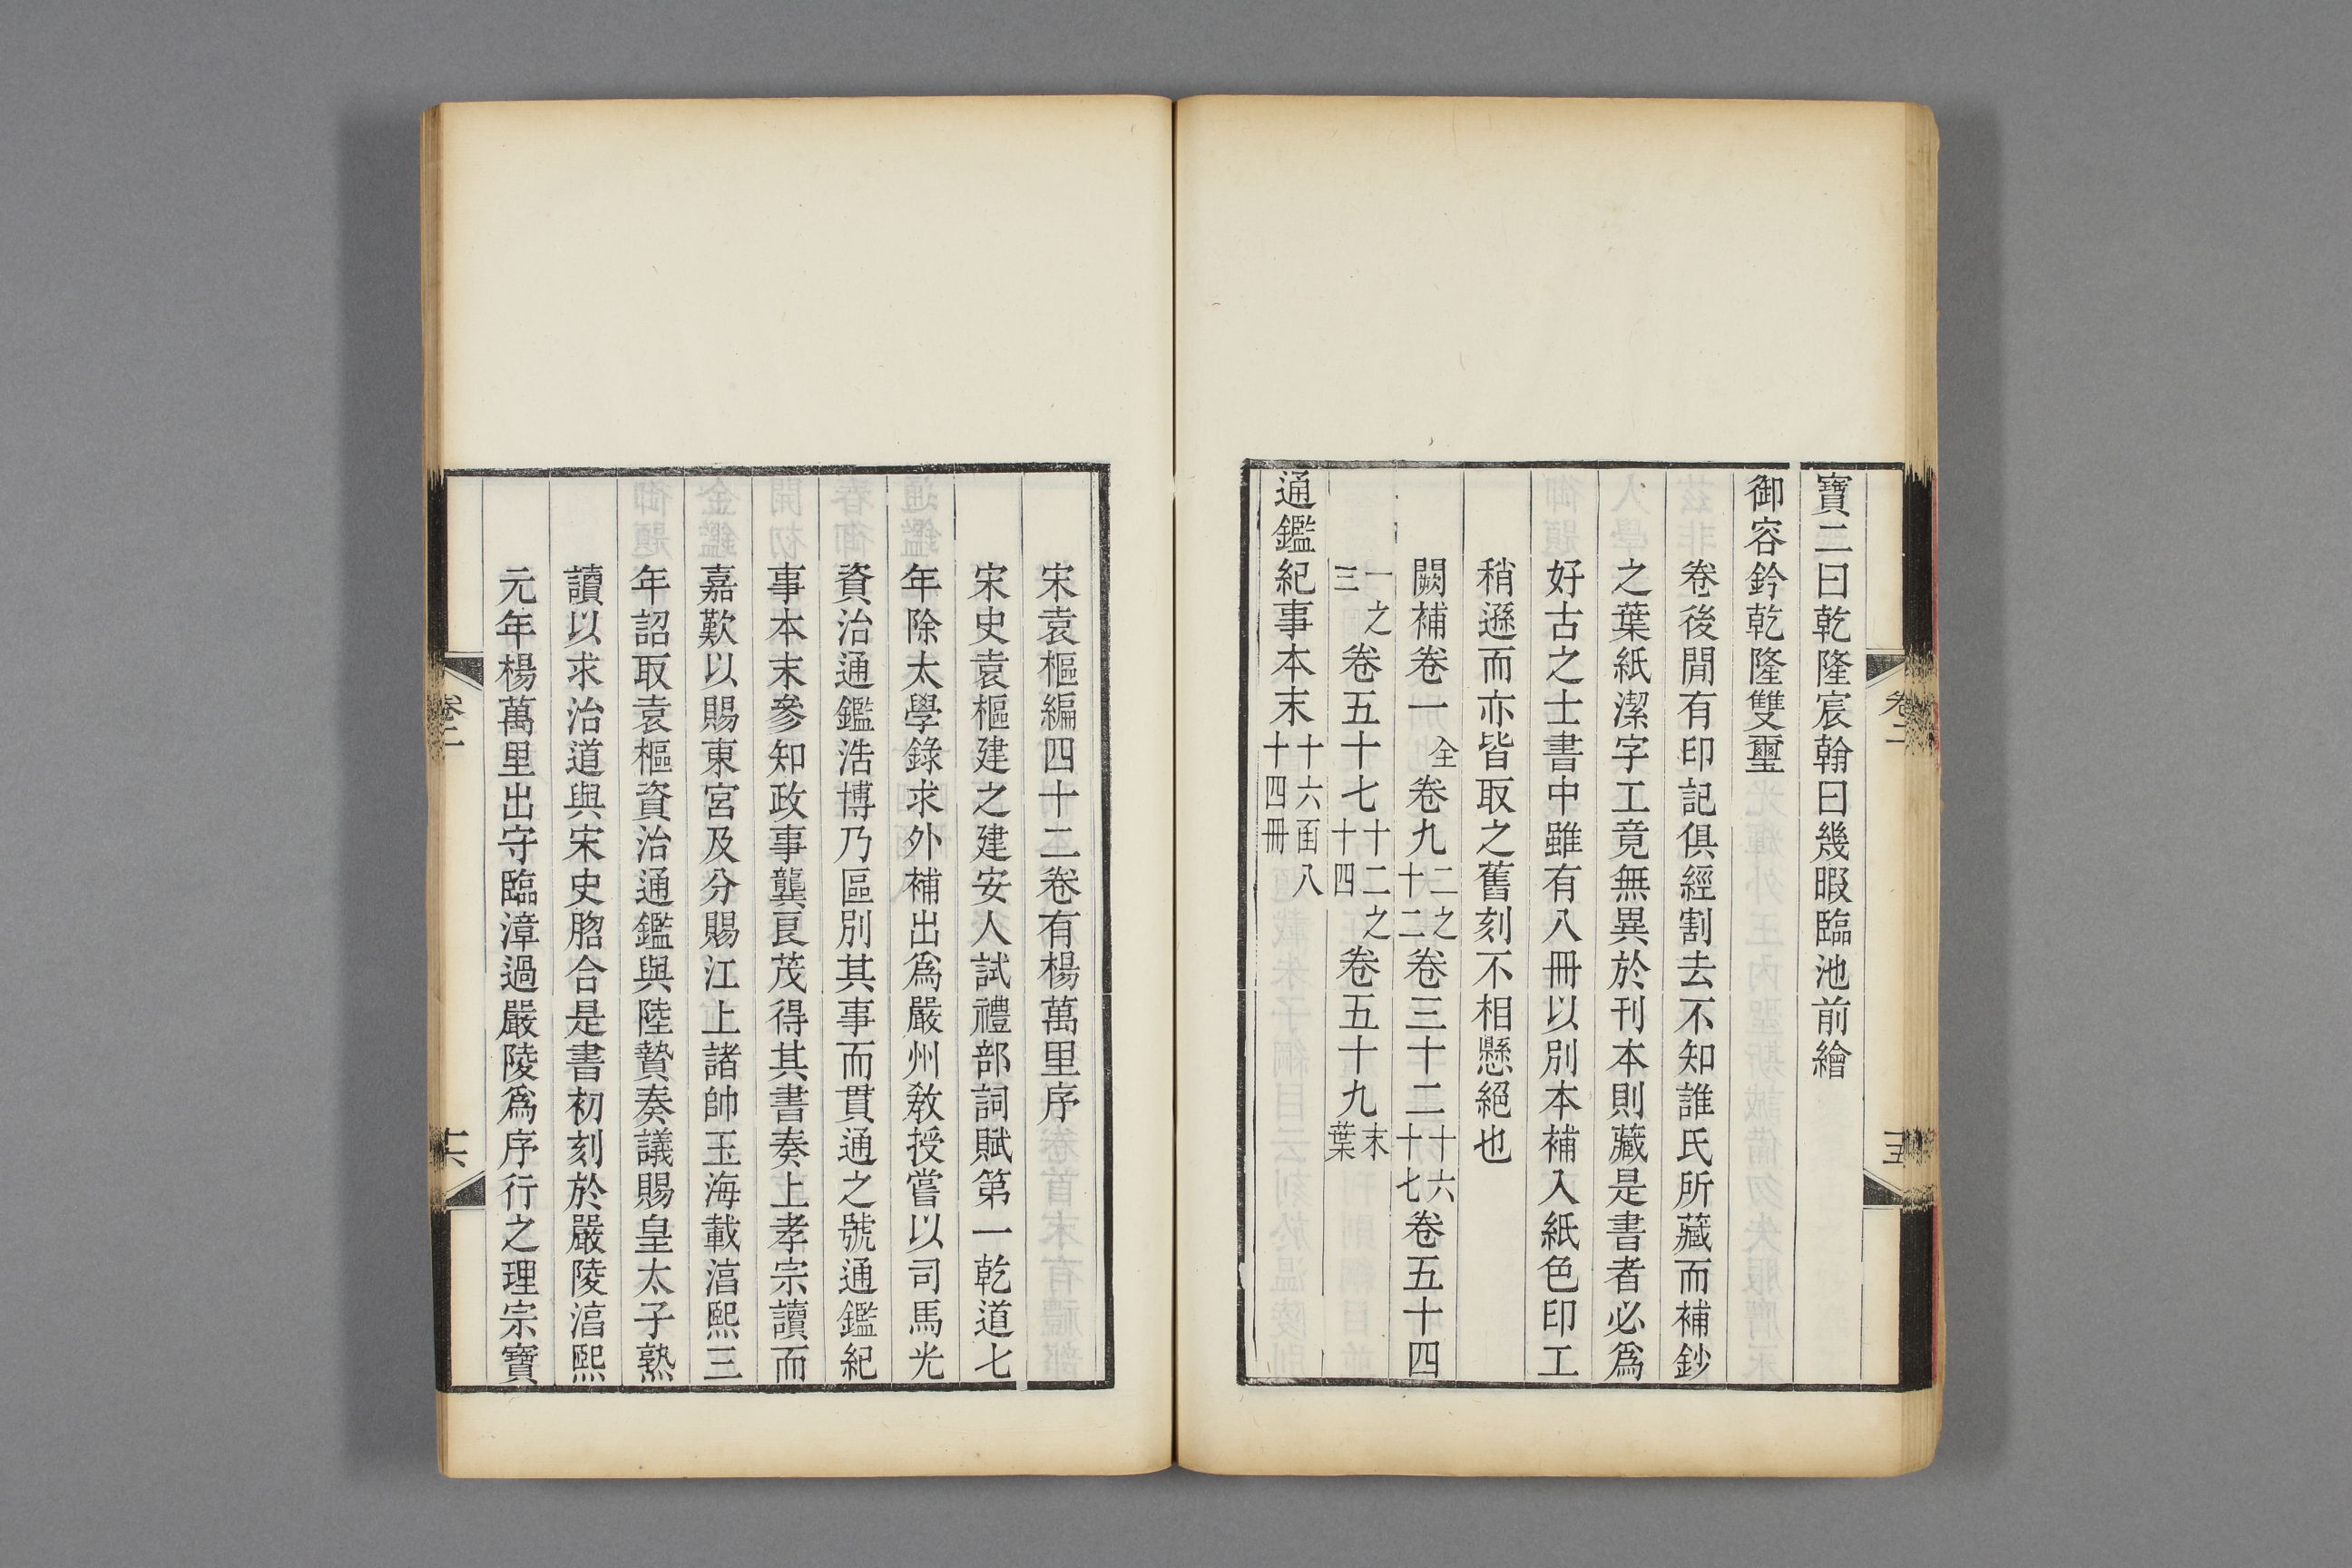 寶二曰乾隆宸翰曰幾暇臨池前繪
御容鈐乾隆雙璽
卷後閒有印記俱經割去不知誰氏所藏而補鈔
之葉紙潔字工竟無異於刊本則藏是書者必爲
好古之士書中雖有八冊以別本補入紙色印工
稍遜而亦皆取之舊刻不相懸絕也
闕補卷一全卷九二之十二卷三十二十六十七卷五十四
一之三卷五十七十二之十四卷五十九末葉
通鑑紀事本末十六函八十四冊
宋袁樞編四十二卷有楊萬里序
宋史袁樞建之建安人試禮部詞賦第一乾道七
年除太學錄求外補出爲嚴州敎授嘗以司馬光
資治通鑑浩博乃區別其事而貫通之號通鑑紀
事本末參知政事龔茂得其書奏上孝宗讀而
嘉歎以賜東宮及分賜江上諸帥玉海載淳熙三
年詔取袁樞資治通鑑與陸贄奏議賜皇太子熟
讀以求治道與宋史脗合是書初刻於嚴陵淳熙
元年楊萬里出守臨漳過嚴陵爲序行之理宗寶
卷二